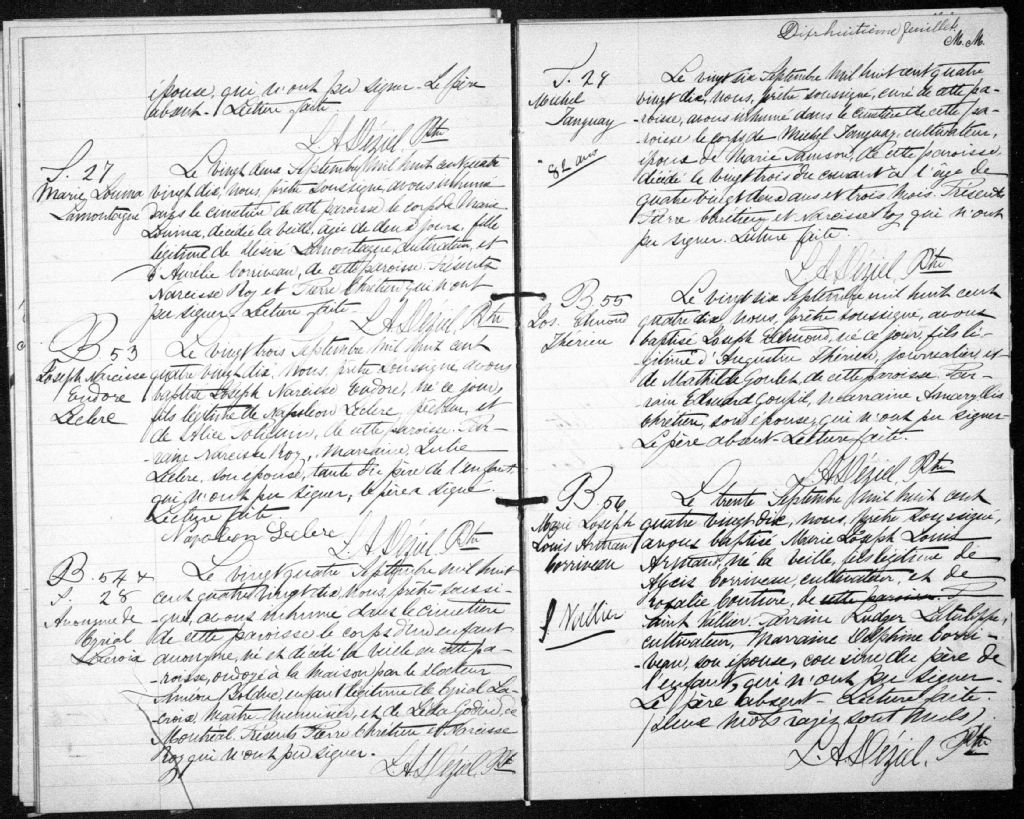 épouse, qui n'ont pu signer. Le père
absent. Lecture faite.
L. A. Déziel, Ptre
S. 27
Marie Louma
Lamontagne
Le vingt deux Septembre mil huit cent quatre
vingt dix, nous, prêtre soussigné, avons inhumé
dans le cimetière de cette paroisse le corps de Marie
Louma, décédée la veille, agée de deux jours, fille
légitime de Désiré Lamontagne, cultivateur, et
d'Aurélie Corriveau, de cette paroisse. Présents
Narcisse Roy et Pierre Chrétien qui n'ont
pu signer. Lecture faite.
L. A. Déziel, Ptre
B 53
Joseph Narcisse
Eudore
Leclerc
Le vingt trois Septembre mil huit cent
quatre vingt dix, nous, prêtre soussigné avons
baptisé Joseph Narcisse Eudore, né ce jour,
fils légitime de Napoléon Leclerc, et
de de cette paroisse. Par-
rain Narcisse Roy, Marraine, Julie
Leclerc, son épouse, tante du père de l'enfant
qui n'ont pu signer, le père a signé.
Lecture faite
Napoléon Leclerc
L. A. Déziel Ptre
B. 54 &
S. 28
Anonyme de
Cyriol
Lacroix
Le vingt quatre Septembre mil huit
cent quatre vingt dix, nous, prêtre soussi-
gné, avons inhumé dans le cimetière
de cette paroisse le corps d'un enfant
anonyme, né et décédé la veille en cette pa-
roisse, ondoyé à la maison par le docteur
Bolduc, enfant légitime de Cyriol La-
croix, maître menuisier, et de Léda Godin, de
Montréal. Présents Pierre Chrétien et Narcisse
Roy qui n'ont pu signer.
L. A. Déziel, Ptre
Dix huitième feuillet.
M. M.
S. 29
Michel
Tanguay
82 ans
Le vingt six Septembre mil huit cent quatre
vingt dix, nous, prêtre soussigné, curé de cette pa-
roisse, avons inhumé dans le cimetière de cette pa-
roisse le corps de Michel Tanguay, cultivateur,
époux de Marie Samson, de cette paroisse,
décédé le vingt trois du courant à l'age de
quatre vingt deux ans et trois mois. Présents
Pierre Chrétien et Narcisse Roy qui n'ont
pu signer. Lecture faite.
L. A. Déziel Ptre
B 55
Jos. Edmond
Therien
Le vingt six Septembre mil huit cent
quatre dix, nous, prêtre soussigné, avons
baptisé Joseph Edmond, né ce jour, fils lé-
gitime d'Augustin Therien, journalier, et
de Mathilde Goulet, de cette paroisse. Par-
rain Edouard Goupil, marraine Amaryllis
Chrétien, son épouse, qui n'ont pu signer
Le père absent. Lecture faite.
L. A. Déziel Ptre
B 56
Marie Joseph
Louis Armand
Corriveau
St Vallier
Le trente Septembre mil huit cent
quatre vingt dix, nous, prêtre soussigné,
avons baptisé Marie Joseph Louis
Armand, né la veille, fils légitime de
Alexis Corriveau, cultivateur, et de
Rosalie Couture, de cette paroisse.
Saint Vallier. Parrain Ludger Latulippe,
cultivateur, Marraine Delphine Corri-
veau, son épouse, cousin du père de
l'enfant, qui n'ont pu signer.
Le père absent. Lecture faite
(deux mots rayés sont nuls).
L. A. Déziel, Ptre